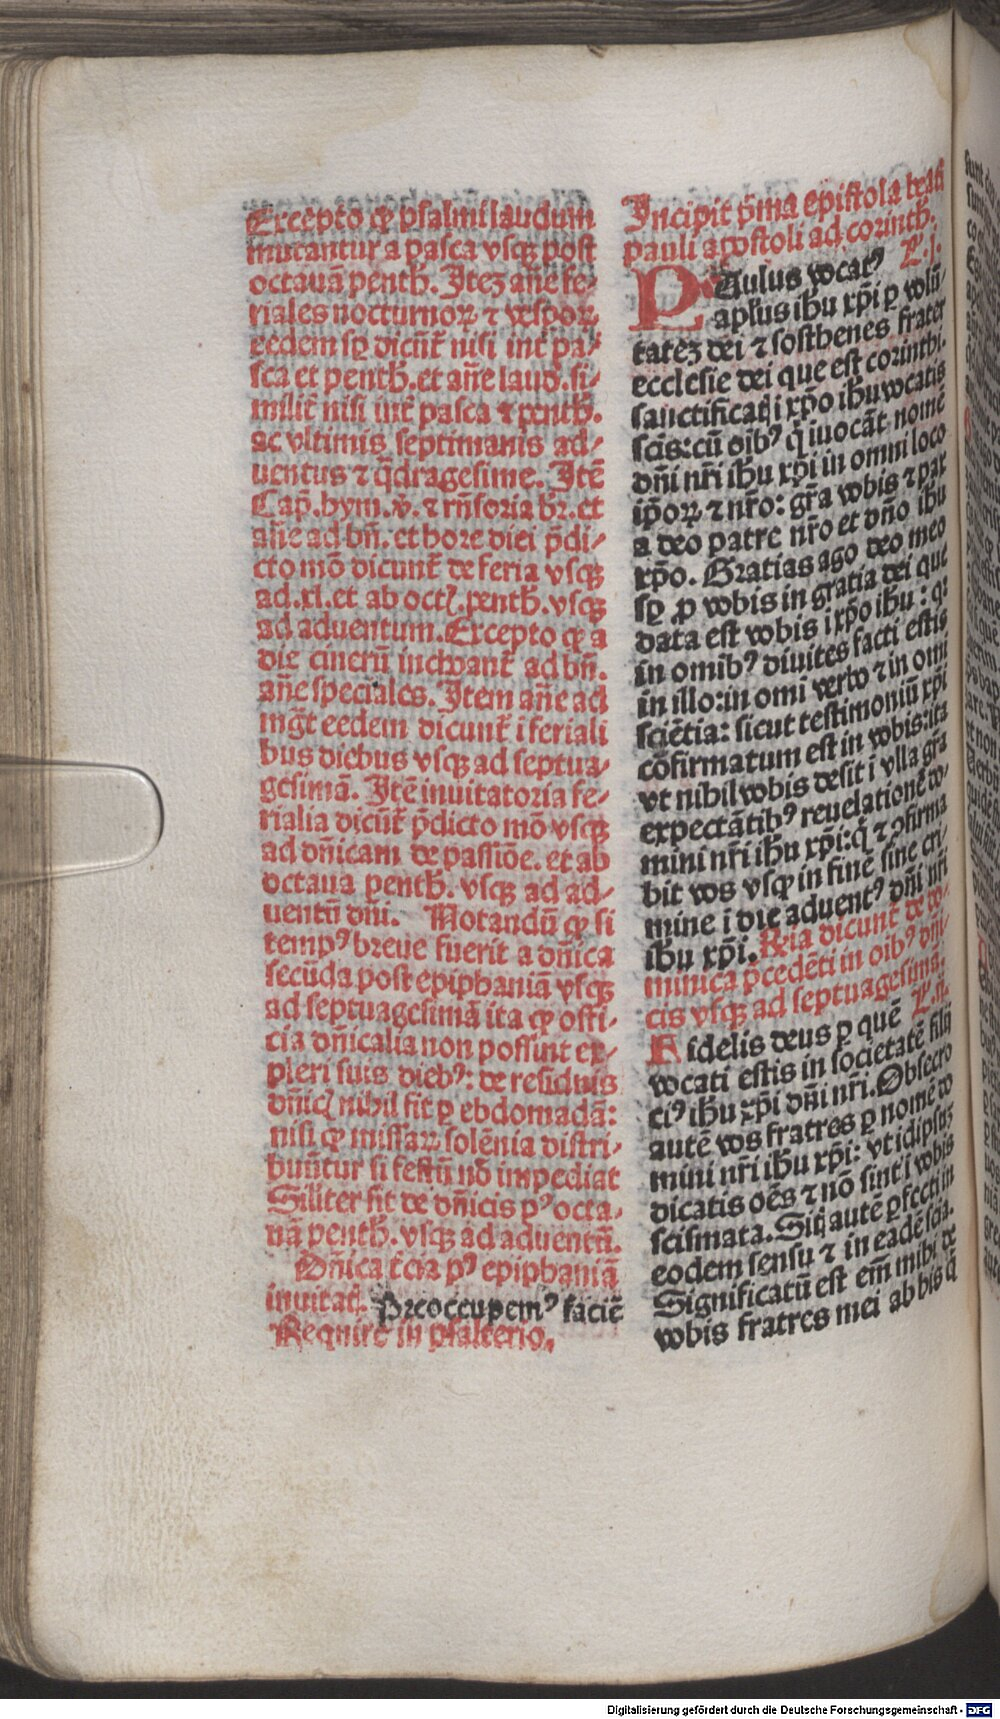 Excepto ꝙ psalmi laudum
mutantur a pasca vsqꝫ post
octauā penth̄. Itez añe fe-
riales nocturnoꝝ ⁊ vespoꝝ
eedem sꝑ dicūt̄ nisi int̄ pa-
sca et penth̄. et añe laud̄. si-
milit̄ nisi int̄ pasca ⁊ penth̄.
ac vltimis septimanis ad-
uentus ⁊ q̄dragesime. Itē
Cap̄. hym. v̄. ⁊ rn̄soria br̄. et
añe ad bn̄. et hore diei p̄di-
cto mō dicunt̄ de feria vsqꝫ
ad .xl. et ab oct̄. penth̄. vsqꝫ
ad aduentum. Excepto ꝙ a
die cinerū inchoant̄ ad bn̄.
añe speciales. Item añe ad
mḡt eedem dicunt̄ i feriali
bus diebus vsqꝫ ad septua-
gesimā. Itē inuitatoria fe-
rialia dicūt̄ p̄dicto mō vsqꝫ
ad dn̄icam de passiōe. et ab
octaua penth̄. vsqꝫ ad ad-
uentū dn̄i. Notandū ꝙ si
tempꝰ breue fuerit a dn̄ica
secūda post epiphaniā vsqꝫ
ad septuagesimā ita ꝙ offi-
cia dn̄icalia non possunt ex-
pleri suis diebꝰ: de residuis
dn̄icꝭ nihil fit ꝑ ebdomadā:
nisi ꝙ missaꝝ solēnia distri-
buūtur si festū nō impediat
Silit̄er fit de dn̄icis pꝰ octa-
uā penth̄. vsqꝫ ad aduentū.
Dn̄ica t̄cia pꝰ epiphaniā
inuitat̄. Preoccupemꝰ faciē
Require in psalterio.
Incipit p̄ma epistola beati
pauli apostoli ad corinth̄.
PAulus vocatꝰ L. j.
aplūs ihū xp̄i ꝑ volū-
tatez dei ⁊ sosthenes frater
ecclesie dei que est corinthi.
sanctificatꝭ i xp̄o ihū vocatis
scīs: cū oībꝰ q̄ iuocāt nomē
dn̄i nr̄i ihū xp̄i in omni loco
ip̄oꝝ ⁊ nr̄o: gr̄a vobis ⁊ pax
a deo patre nr̄o et dn̄o ihū
xp̄o. Gratias ago deo meo
sꝑ ꝓ vobis in gratia dei que
data est vobis i xp̄o ihū: q:
in omībꝰ diuites facti estis
in illo: in omī verbo ⁊ in omī
sciētia: sicut testimoniū xp̄i
cōfirmatum est in vobis: ita
vt nihil vobis desit i vlla gr̄a
expectātibꝰ reuelationē do-
mini nr̄i ihū xp̄i: q̄ ⁊ ꝯfirma
bit vos vsqꝫ in finē sine cri-
mine i die aduentꝰ dn̄i nr̄i
ihū xp̄i. Rn̄ia dicunt̄ de do-
minica p̄cedēti in oībꝰ dn̄i-
cis vsqꝫ ad septuagesimā.
Fidelis deus ꝑ quē L. ij.
vocati estis in societatē filij
eiꝰ ihū xp̄i dn̄i nr̄i. Obsecro
autē vos fratres ꝑ nomē do
mini nr̄i ihū xp̄i: vt idipsuꝫ
dicatis oēs ⁊ nō sint i vobis
scismata. Sitꝭ autē ꝑfecti in
eodem sensu ⁊ in eadē scīa.
Significatū est em̄ mihi de
vobis fratres mei ab his q̄
Digitalisierung gefördert durch die Deutsche Forschungsgemeinschaft - DFG